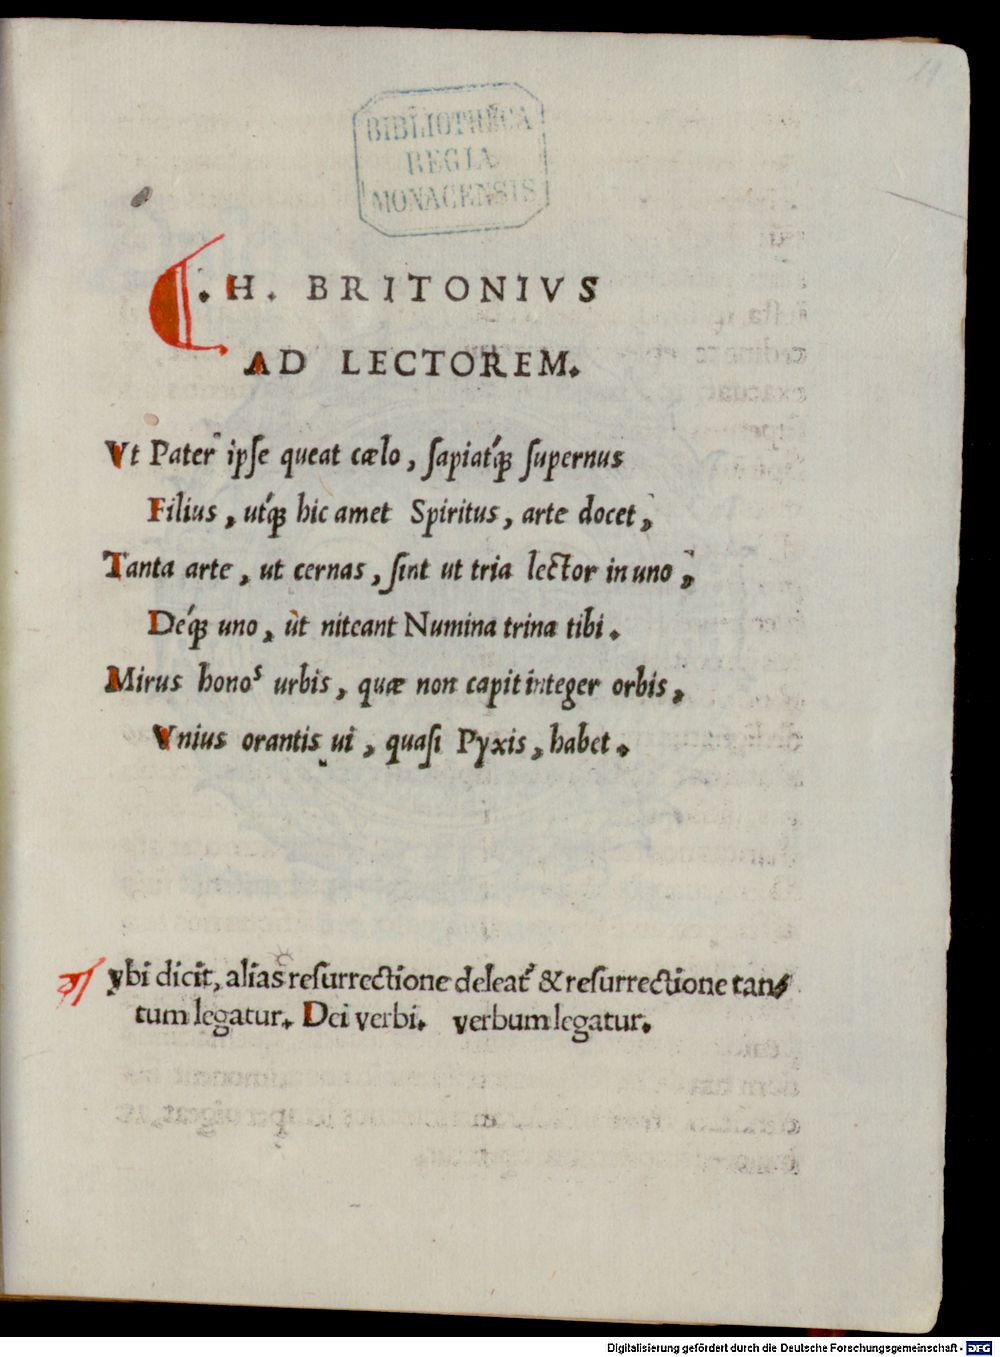 BIBLIOTHECA
REGIA
MONACENSIS
.H. BRITONIVS
AD LECTOREM.
Vt Pater ipſe queat cælo, ſapiatq́ꝫ ſupernus
Filius, utq́ꝫ hic amet Spiritus, arte docet,
Tanta arte, ut cernas, ſint ut tria lector in uno,
Deq́ꝫ uno, ùt niteant Numina trina tibi.
Mirus honos urbis, quæ non capit integer orbis,
Vnius orantis ui, quaſi Pyxis, habet.
ybi dicit, alias reſurrectione deleat᷑ & reſurrectione tan⸗
tum legatur. Dei verbi. verbum legatur.
Digitalisierung gefördert durch die Deutsche Forschungsgemeinschaft - DFG